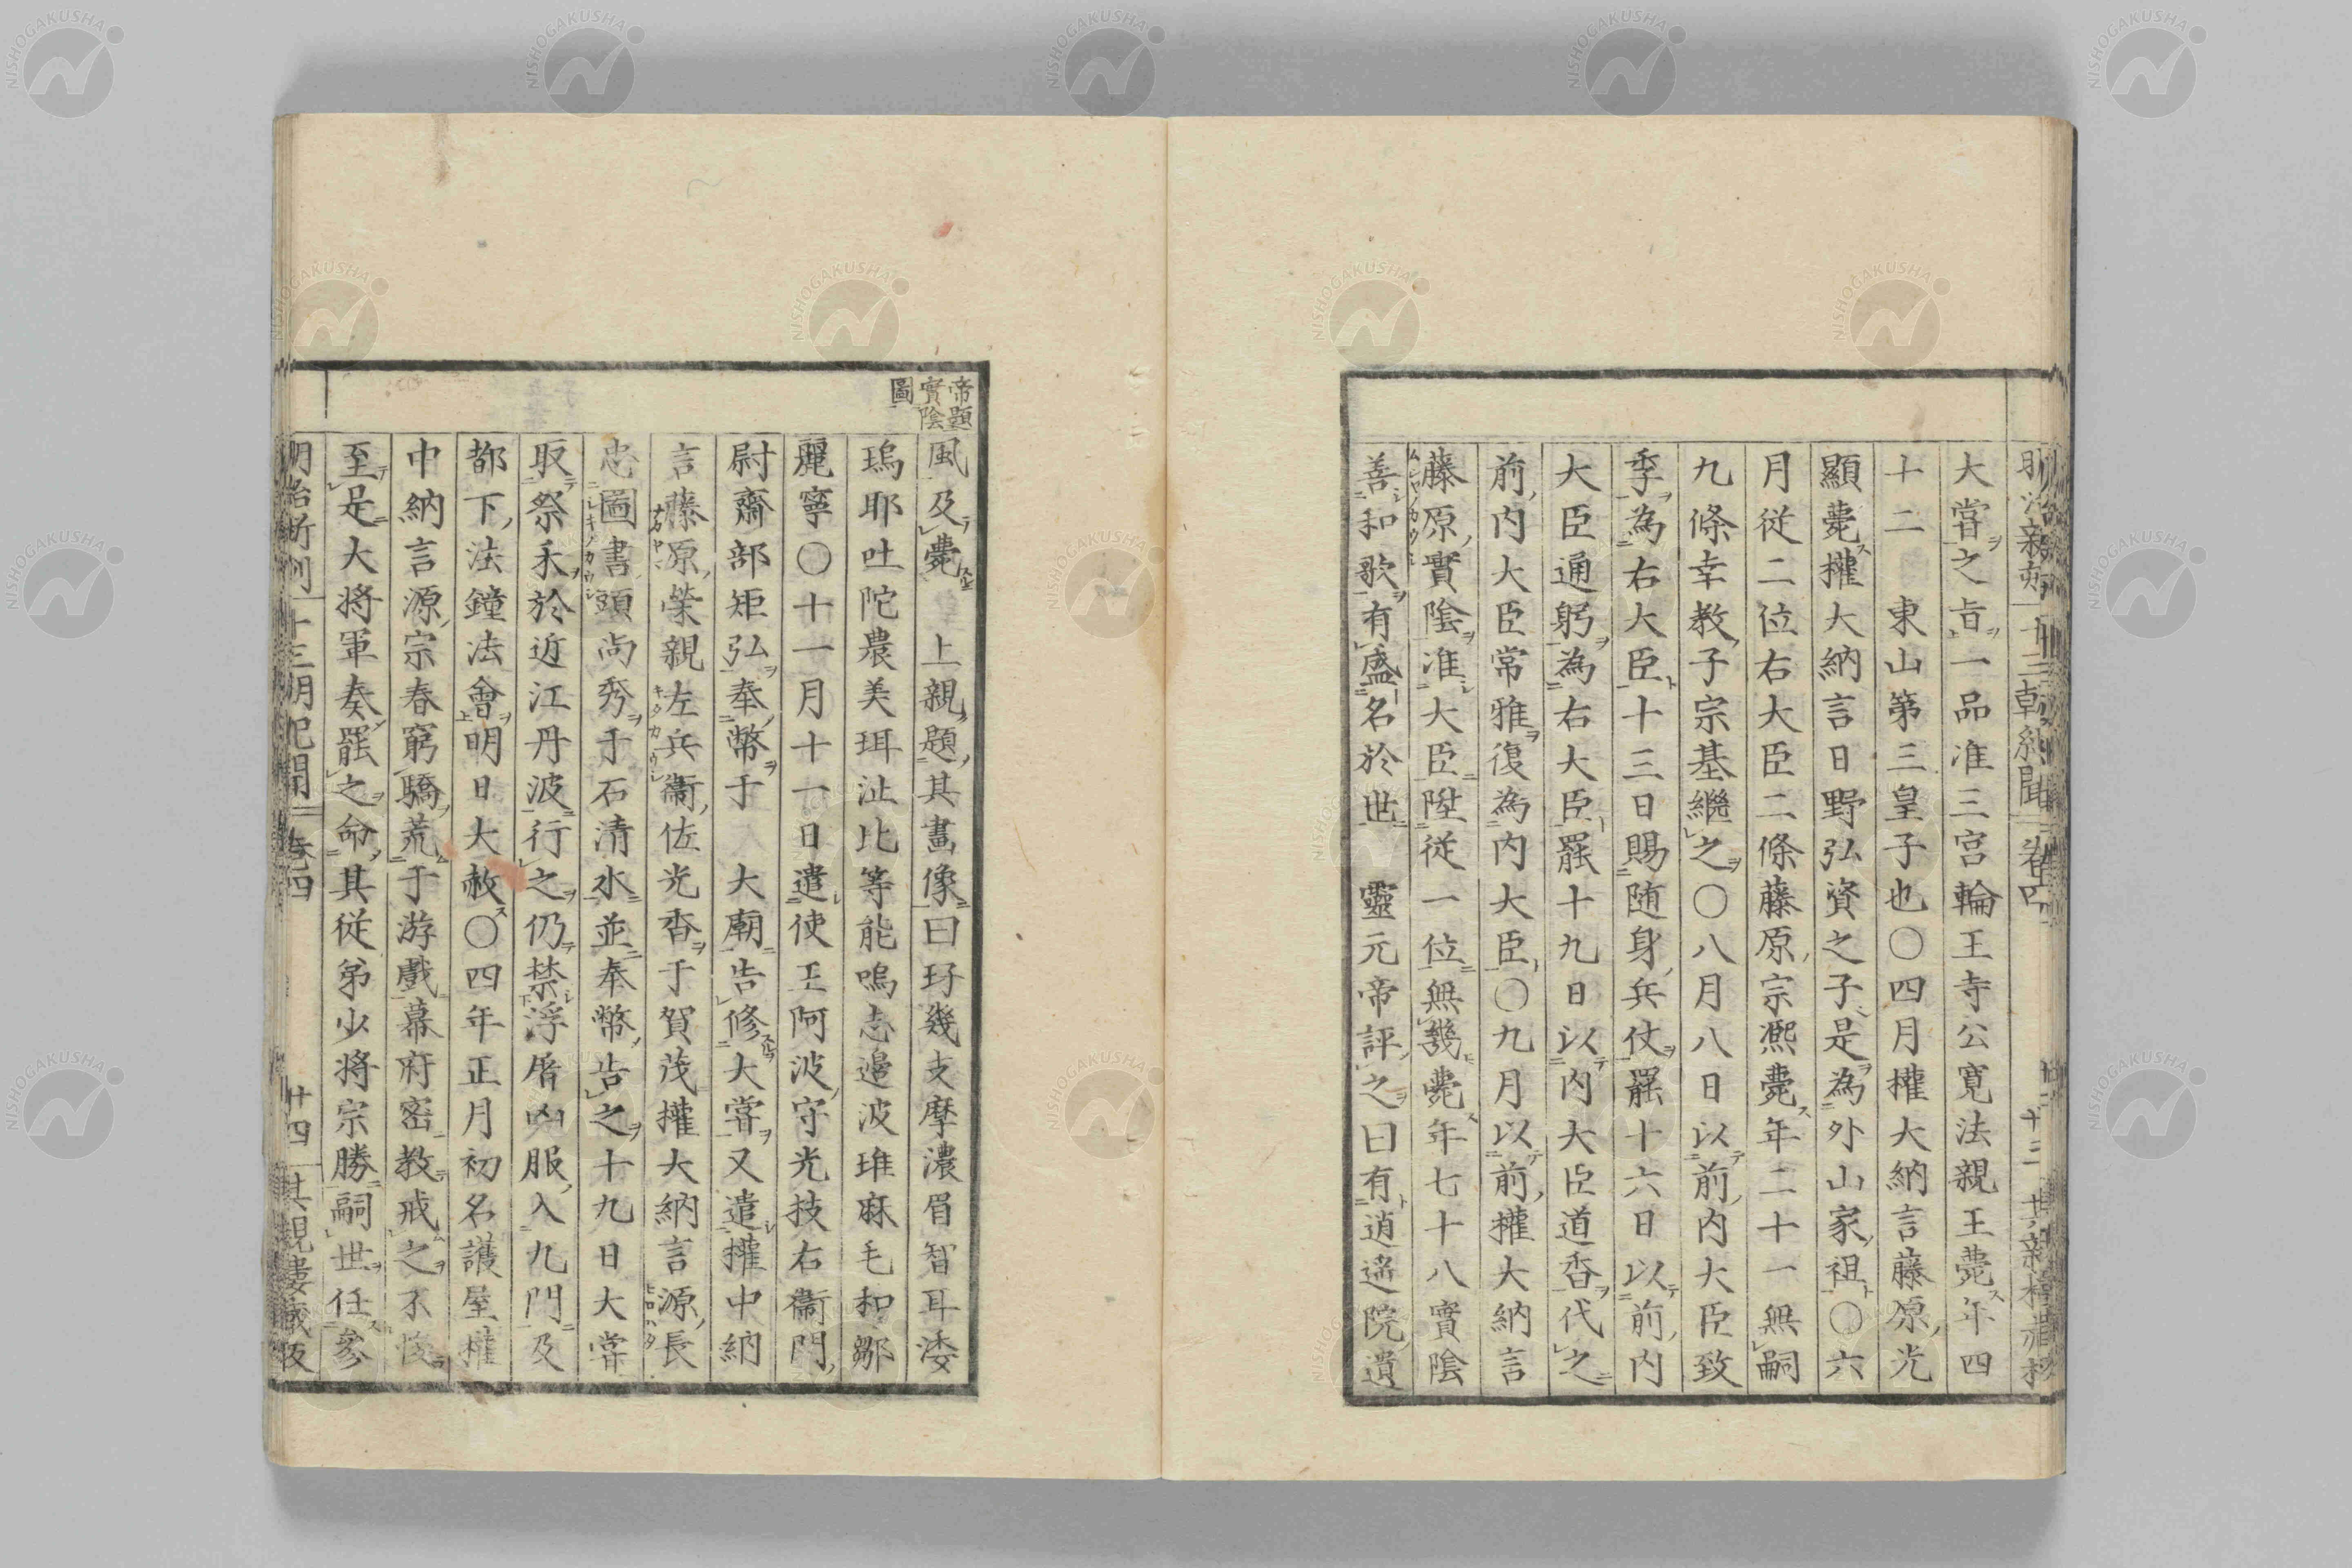 大嘗之旨一品准三宮輪王寺公寬法親王薨年四
十二　東山第三皇子也〇四月權大納言藤原光
顯薨權大納言日野弘資之子是為外山家祖〇六
月從二位右大臣二條藤原宗熙薨年二十一無嗣
九條幸教子宗基繼之〇八月八日以前內大臣致
季為右大臣十三日賜隨身兵仗罷十六日以前內
大臣通躬為右大臣罷十九日以內大臣道香代之
前內大臣常雅復為內大臣〇九月以前權大納言
藤原實陰准大臣陞從一位無幾薨年七十八實陰
善和歌有盛名於世　靈元帝評之曰有逍遙院遺
帝題
實陰
圖
風及薨　上親題其畫像曰玗幾支摩濃眉智耳委
瑦耶吐陀農美珥沚比等能嗚志邉波琟麻毛和鄒
麗寧〇十一月十一日遣使王阿波守光技右衞門
尉齋部矩弘奉幣于　大廟告修大嘗又遣權中納
言藤原榮親左兵衞佐光香于賀茂權大納言源長
忠圖書頭尚秀于石清水並奉幣告之十九日大嘗
取祭禾於近江丹波行之仍禁浮屠凶服入九門及
都下法鐘法會明日大赦〇四年正月初名護屋權
中納言源宗春窮驕荒于游戲幕府密教戒之不悛
至是大將軍奏罷之命其從弟少將宗勝嗣世任參
卷四
廿四